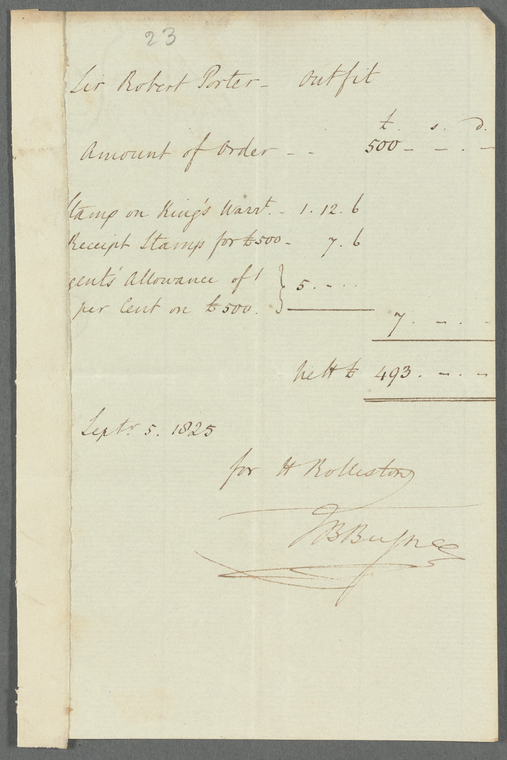 23
Sir Robert Porter - Outfit
£. s. d.
Amount of Order - - 500 - - . -
Stamp on King's Warrt. - 1. 12. 6
Receipt Stamp for £500 - 7. 6
gent's Allowance of 1 } 5. - . -
per Cent on £500.
7. - . -
Nett £ 493. - . -
Septr. 5. 1825
for H Rolleston